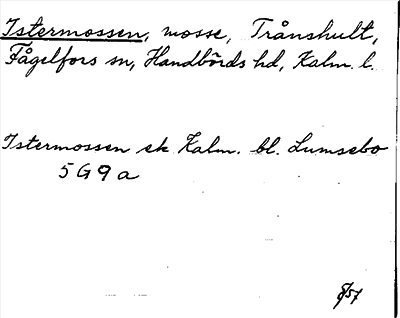 Istermossen, mosse, Trånshult,
Fågelfors sn, Handbörds hd, Kalm. l.
Istermossen ek Kalm. bl. Lumsebo
5G9a